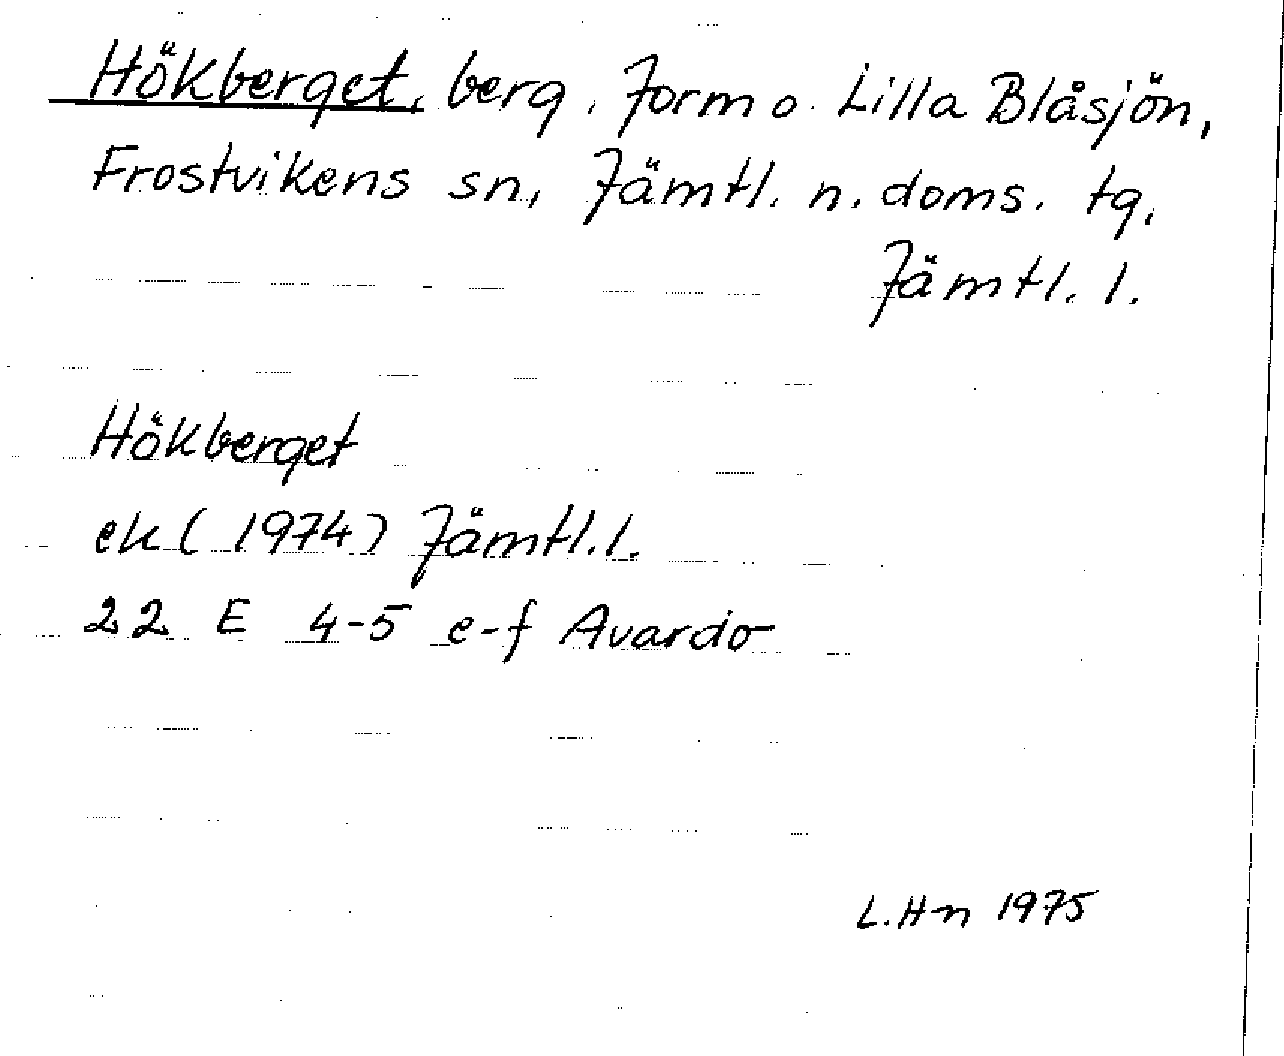 Hökberget, berg, Jorm o. Lilla Blåsjön,
Frostvikens sn, Jämtl. n. doms. tg,
Jämtl. l.
Hökberget
ek (1974) Jämtl. l.
22 E 4-5 e-f Avardo
L. Hn 1975